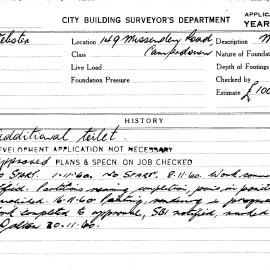 CITY BUILDING SURVEYOR'S DEPARTMENT APPLIC
YEAR
Webster Location 149 Missenden Road Description
Class Camperdown Nature of Foundat
Live Load Depth of Footings
Foundation Pressure Checked by
Estimate £100
HISTORY
additional toilet.
DEVELOPMENT APPLICATION NOT NECESSARY
approved PLANS & SPECN. ON JOB CHECKED
No START. 1-11-60. No START. 8.11.60. Work comm
Partitions nearing completion, in posit
16-11-60 Painting, rendering in progress
work completed to approval, SBI notified, marked
20-11-60.